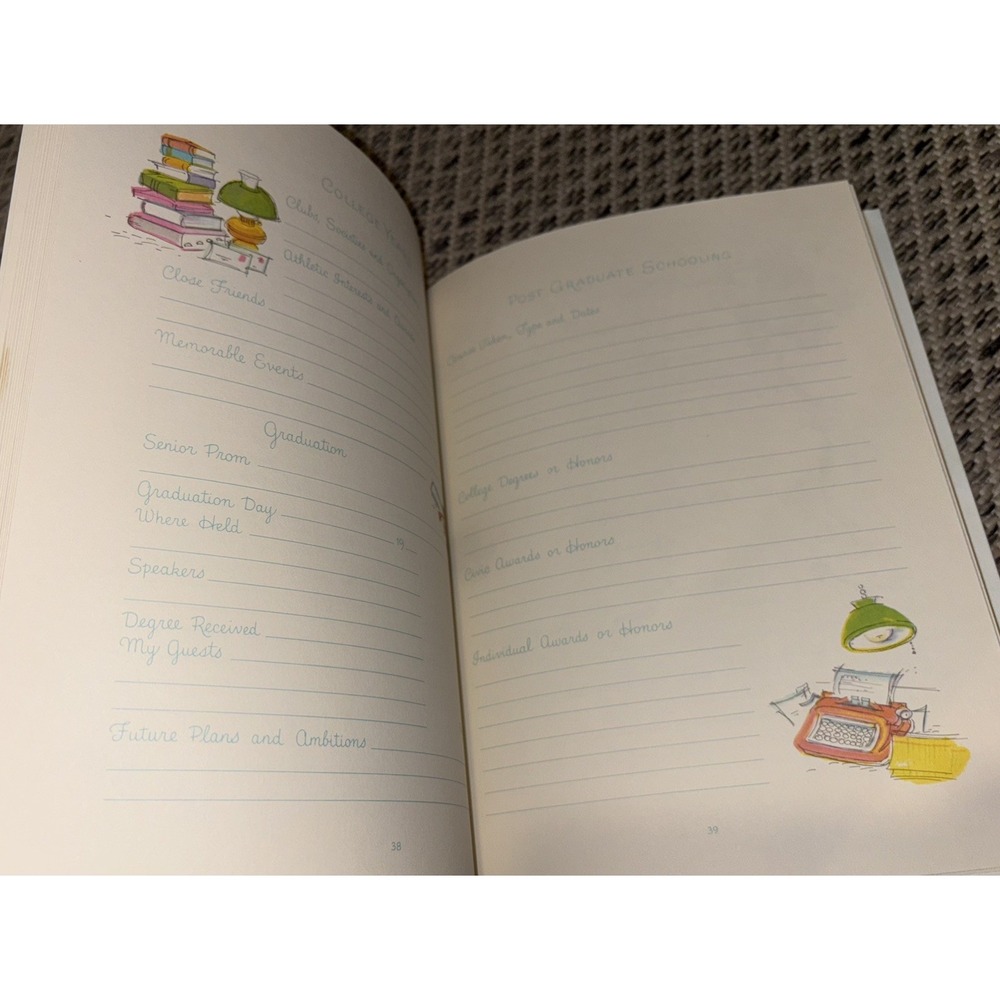 COLLEGE
Clubs, Societies and
Athletic Interests and
Close Friends
Memorable Events
Graduation
Senior Prom
Graduation Day
Where Held 19
Speakers
Degree Received
My Guests
Future Plans and Ambitions
38
POST GRADUATE SCHOOLING
Where Taken, Type and Dates
College Degrees or Honors
Civic Awards or Honors
Individual Awards or Honors
39